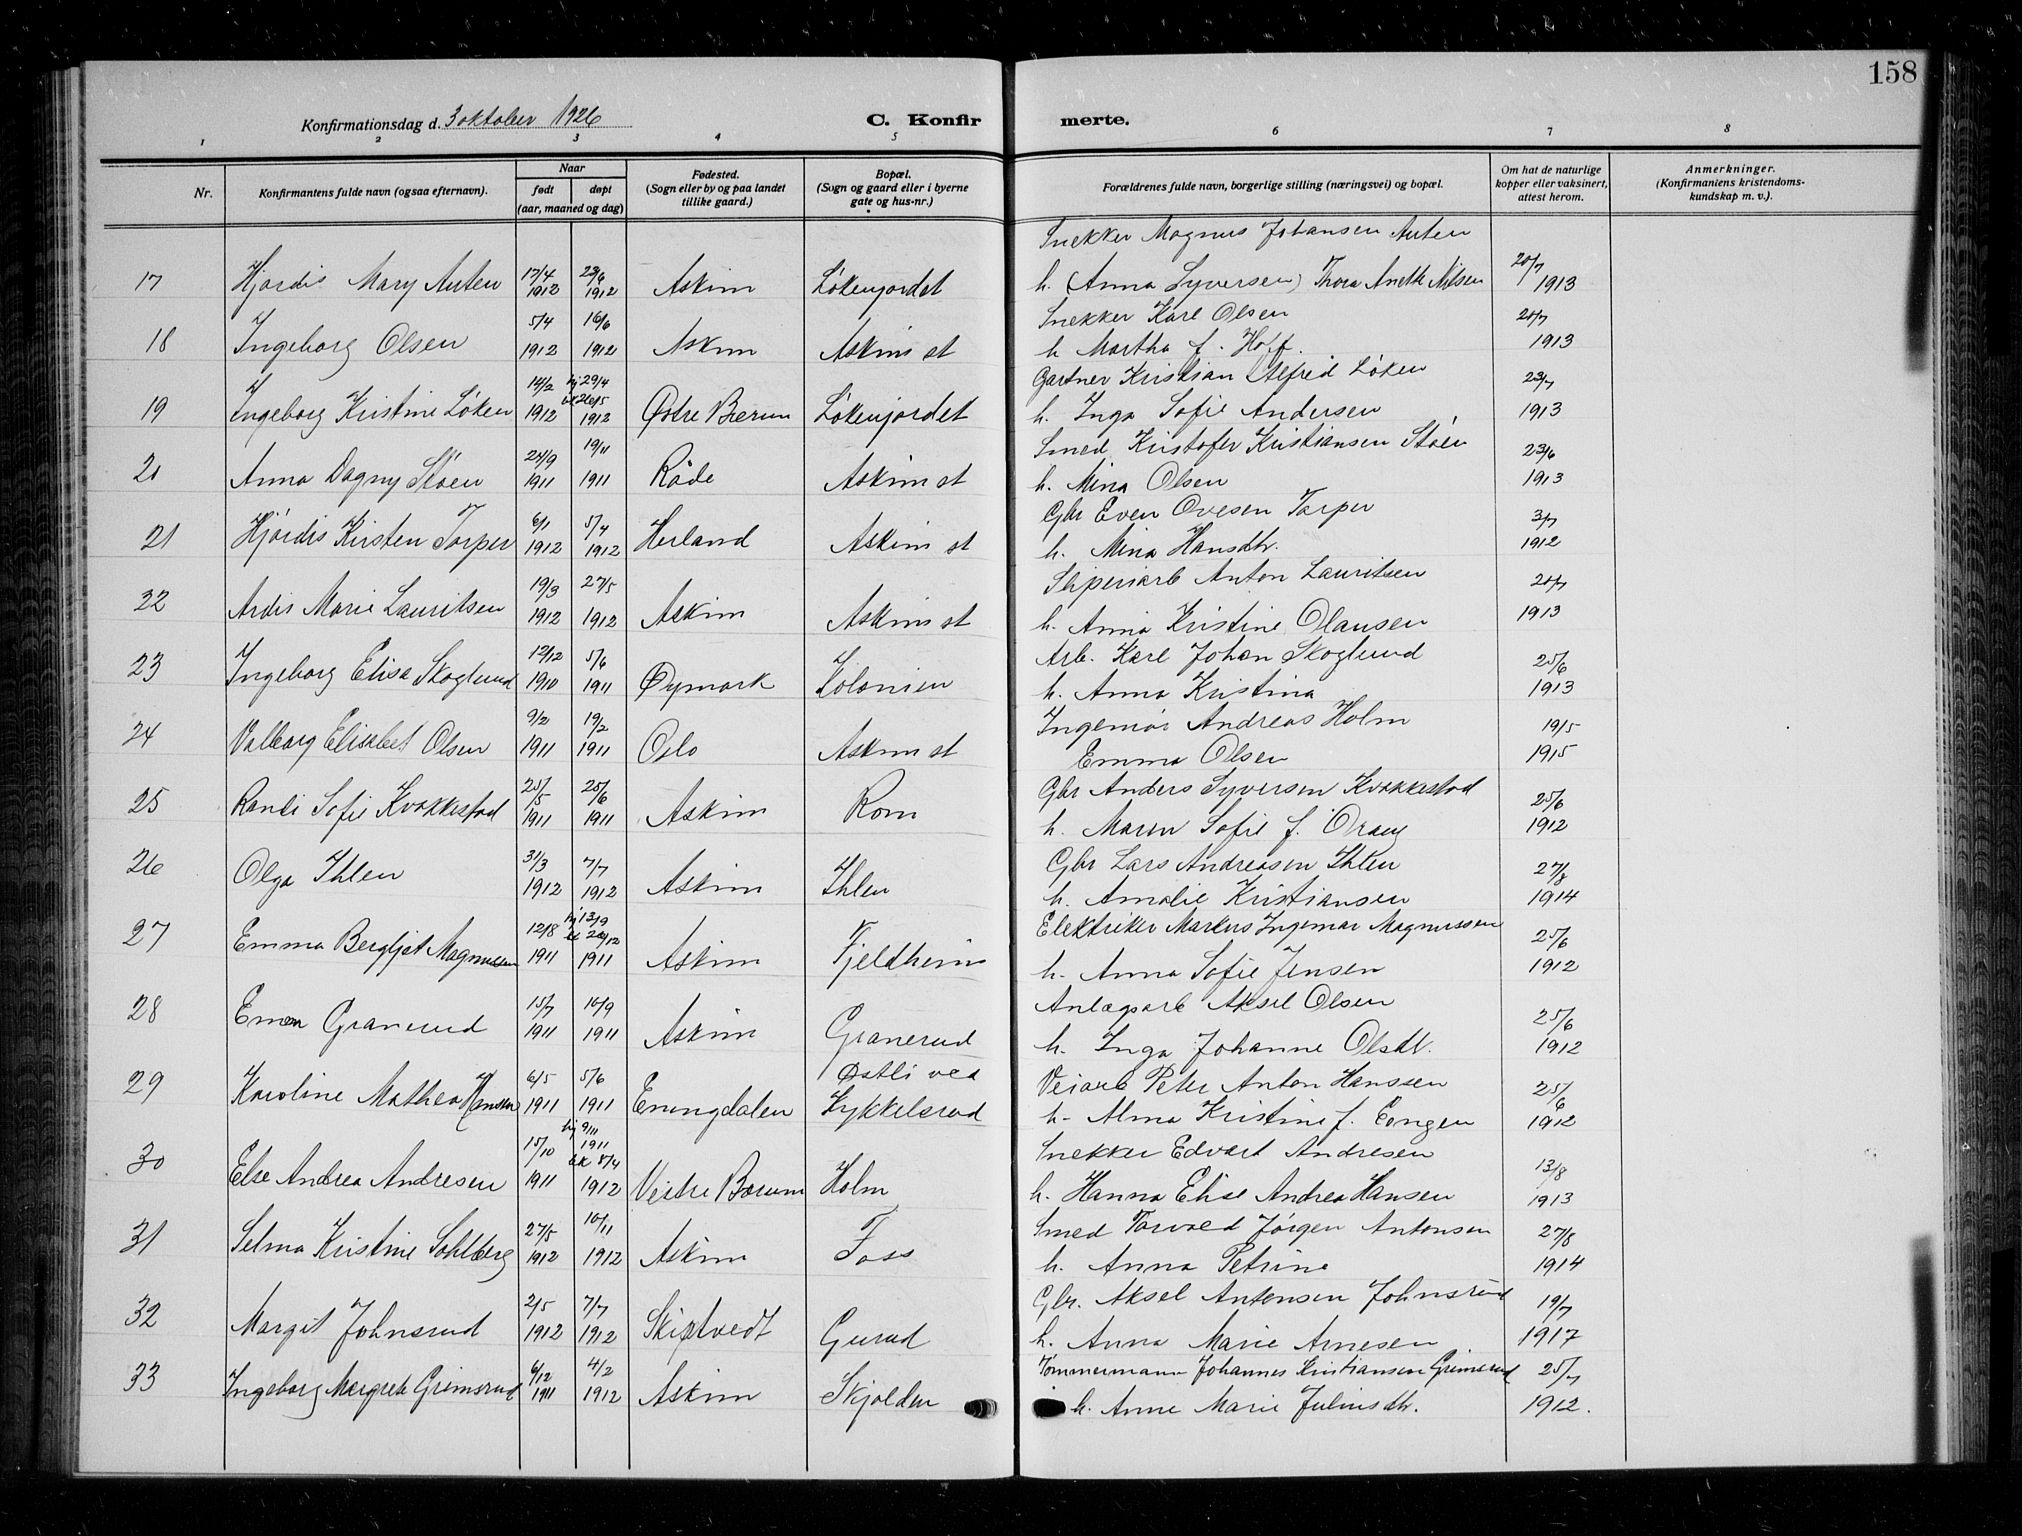 158
Konfirmationsdag d. 3 oktober 1926 C. Konfir merte.
1 2 3 4 5 6 7 8
Nr. Konfirmantens fulde navn (ogsaa efternavn). Naar født døpt (aar, maaned og dag) Fødested. (Sogn eller by og paa landet tillike gaard.) Bopæl. (Sogn og gaard eller i byerne gate og hus-nr.) Forældrenes fulde navn, borgerlige stilling (næringsvei) og bopæl. Om hat de naturlige kopper eller vaksinert, attest herom. Anmerkninger. (Konfirmaniens kristendoms-kundskap m. v.).
Snekker Magnus Johansen Auten
17 Hjørdis Mary Auten 17/4 1912 23/6 1912 Askim Løkenjordet h. (Anna Syversen) Thora Aneth Nilsen 20/7 1913
Snekker Karl Olsen
18 Ingeborg Olsen 5/4 1912 16/6 1912 Askim Askim st h Martha f. Hoff. 20/7 1913
Gartner Kristian Alfred Løken
19 Ingeborg Kristine Løken 14/2 1912 hj 29/4 bk 26/5 1912 Østre Bærum Løkenjordet h. Inga Sofie Andersen 23/7 1913
Smed Kristofer Kristiansen Støen
20 Anna Dagny Støen 24/9 1911 19/11 1911 Råde Askim st h. Mina Olsen 23/6 1913
Gbr Even Ovesen Torper
21 Hjørdis Kirsten Torper 6/1 1912 5/4 1912 Herland Askim st h. Mina Hansdtr. 3/7 1912
Sliperiarb Anton Lauritsen
22 Ardis Marie Lauritsen 19/3 1912 27/5 1912 Askim Askim st h. Anna Kristine Olausen 20/7 1913
Arb. Karl Johan Skoglund
23 Ingeborg Elisa Skoglund 12/12 1910 5/6 1911 Øymark Kolonien h. Anna Kristina 25/6 1913
Ingeniør Andreas Holm
24 Valborg Elisabet Olsen 9/2 1911 19/2 1911 Oslo Askim st Emma Olsen 19/5 1915
Gbr Anders Syversen Kvakkestad
25 Randi Sofie Kvakkestad 25/5 1911 25/6 1911 Askim Rom h. Maren Sofie f. 25/6 1912
Gbr Lars Andreasen Ihlen
26 Olga Ihlen 31/3 1912 7/7 1912 Askim Ihlen h. Amalie Kristiansen 27/8 1914
Elektriker Markus Ingemar Magnussen
27 Emma Bergljot Magnussen 12/8 1911 hj 13/9 bk 26/12 1911 Askim Fjeldheim h. Anna Sofie Jensen 25/6 1912
Anlægsarb Aksel Olsen
28 Emma Granerud 15/7 1911 10/9 1911 Askim Granerud h. Inga Johanne Olsdtr. 25/6 1912
Østli ved Veiarb Peter Anton Hanssen
29 Karoline Mathea Hanssen 6/5 1911 5/6 1911 Enningdalen Kykkelsrud h. Alma Kristine f. Engen 25/6 1912
Snekker Edvart Andresen
30 Else Andrea Andresen 15/10 1911 hj 9/11 1911 bk 8/4 1912 Vestre Bærum Holm h. Hanna Elise Andrea Hansen 13/8 1913
Smed Torvald Jørgen Antonsen
31 Selma Kristine Sohlberg 27/5 1912 10/11 1912 Askim Foss h. Anna Petrine 27/8 1914
Gbr. Aksel Antonsen Johnsrud
32 Margit Johnsrud 2/5 1912 7/7 1912 Skiptvedt Gurud h. Anna Marie Arnesen 19/7 1917
Tømmermann Johannes Kristiansen Grimsrud
33 Ingeborg Margrete Grimsrud 6/12 1911 4/2 1912 Askim Skjolden h. Anne Marie Juliusdtr. 25/7 1912.